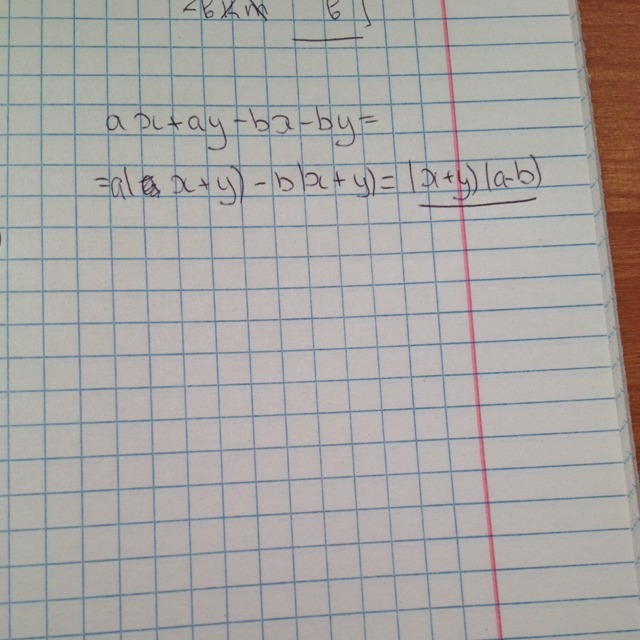 ax+ay-bx-by=
=a(x+y)-b(x+y)=(x+y)(a-b)